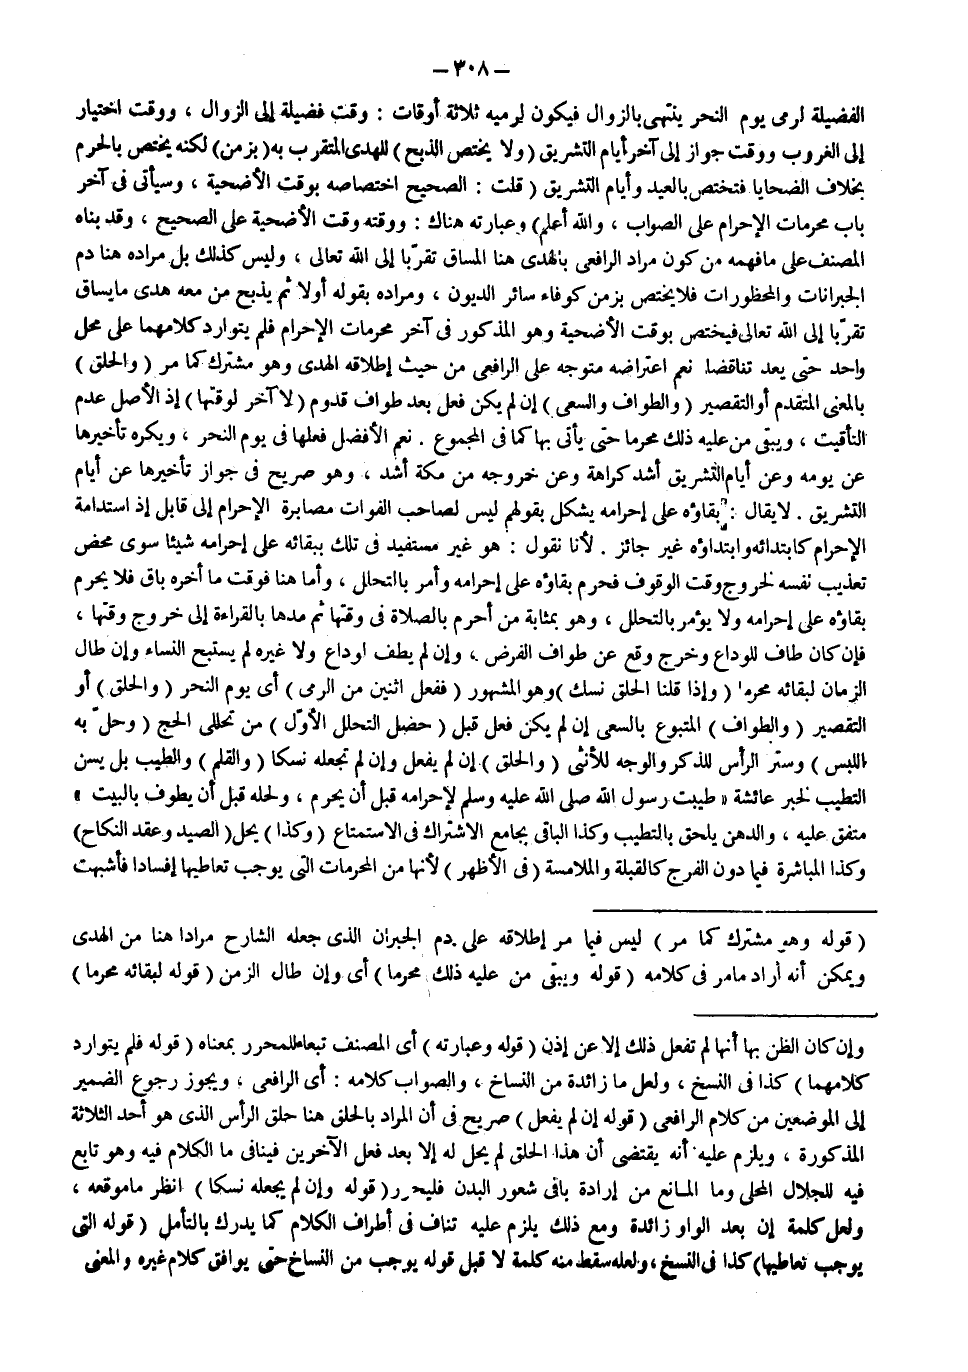 — ٣٠٨ —
الفضيلة لرمى يوم النحر ينتهى بالزوال فيكون لرميه ثلاثة أوقات : وقت فضيلة إلى الزوال ، ووقت اختيار
إلى الغروب ووقت جواز إلى آخر أيام التشريق ( ولا يختص الذبح ) للهدى المتقرب به ( بزمن ) لكنه يختص بالحرم
بخلاف الضحايا فتختص بالعيد وأيام التشريق ( قلت : الصحيح اختصاصه بوقت الأضحية ، وسيأتى فى آخر
باب محرمات الإحرام على الصواب ، والله أعلم ) وعبارته هناك : ووقته وقت الأضحية على الصحيح ، وقد بناه
المصنف على مافهمه من كون مراد الرافعى بالهدى هنا المساق تقربّا إلى الله تعالى ، وليس كذلك بل مراده هنا دم
الجبرانات والمحظورات فلا يختص بزمن كوفاء سائر الديون ، ومراده بقوله أولا ثم يذبح من معه هدى مايساق
تقربّا إلى الله تعالى فيختص بوقت الأضحية وهو المذكور فى آخر محرمات الإحرام فلم يتوارد كلامهما على محل
واحد حتى يعد تناقضا نعم اعتراضه متوجه على الرافعى من حيث إطلاقه الهدى وهو مشترك كما مر ( والحلق )
بالمعنى المتقدم أو التقصير ( والطواف والسعى ) إن لم يكن فعل بعد طواف قدوم ( لا آخر لوقتها ) إذ الأصل عدم
التأقيت ، ويبقى من عليه ذلك محرما حتى يأتى بها كما فى المجموع . نعم الأفضل فعلها فى يوم النحر ، ويكره تأخيرها
عن يومه وعن أيام التشريق أشد كراهة وعن خروجه من مكة أشد ، وهو صريح فى جواز تأخيرها عن أيام
التشريق . لا يقال : بقاؤه على إحرامه يشكل بقولهم ليس لصاحب الفوات مصابرة الإحرام إلى قابل إذ استدامة
الإحرام كابتدائه وابتداؤه غير جائز . لأنا نقول : هو غير مستفيد فى تلك ببقائه على إحرامه شيئا سوى محض
تعذيب نفسه لخروج وقت الوقوف فحرم بقاؤه على إحرامه وأمر بالتحلل ، وأما هنا فوقت ما أخره باق فلا يحرم
بقاؤه على إحرامه ولا يؤمر بالتحلل ، وهو بمثابة من أحرم بالصلاة فى وقتها ثم مدها بالقراءة إلى خروج وقتها ،
فإن كان طاف للوداع وخرج وقع عن طواف الفرض ، وإن لم يطف لوداع ولا غيره لم يستبح النساء وإن طال
الزمان لبقائه محرما ( وإذا قلنا الحلق نسك ) وهو المشهور ( ففعل اثنين من الرمى ) أى يوم النحر ( والحلق ) أو
التقصير ( والطواف ) المتبوع بالسعى إن لم يكن فعل قبل ( حصل التحلل الأوّل ) من تحللى الحج ( وحلّ به
اللبس ) وستر الرأس للذكر والوجه للأنثى ( والحلق ) إن لم يفعل وإن لم تجعله نسكا ( والقلم ) والطيب بل يسن
التطيب لخبر عائشة « طيبت رسول الله صلى الله عليه وسلم لإحرامه قبل أن يحرم ، ولحله قبل أن يطوف بالبيت »
متفق عليه ، والدهن يلحق بالتطيب وكذا الباقى بجامع الاشتراك فى الاستمتاع ( وكذا ) يحل ( الصيد وعقد النكاح )
وكذا المباشرة فيما دون الفرج كالقبلة والملامسة ( فى الأظهر ) لأنها من المحرمات التى يوجب تعاطيها إفسادا فأشبهت
( قوله وهو مشترك كما مر ) ليس فيما مر إطلاقه على دم الجبران الذى جعله الشارح مرادا هنا من الهدى
ويمكن أنه أراد مامر فى كلامه ( قوله ويبقى من عليه ذلك محرما ) أى وإن طال الزمن ( قوله لبقائه محرما )
وإن كان الظن بها أنها لم تفعل ذلك إلا عن إذن ( قوله وعبارته ) أى المصنف تبعا للمحرر بمعناه ( قوله فلم يتوارد
كلامهما ) كذا فى النسخ ، ولعل ما زائدة من النساخ ، والصواب كلامه : أى الرافعى ، ويجوز رجوع الضمير
إلى الموضعين من كلام الرافعى ( قوله إن لم يفعل ) صريح فى أن المراد بالحلق هنا حلق الرأس الذى هو أحد الثلاثة
المذكورة ، ويلزم عليه أنه يقتضى أن هذا الحلق لم يحل له إلا بعد فعل الآخرين فينافى ما الكلام فيه وهو تابع
فيه للجلال المحلى وما المانع من إرادة باقى شعور البدن فليحرر ( قوله وإن لم يجعله نسكا ) انظر ماموقعه ،
ولعل كلمة إن بعد الواو زائدة ومع ذلك يلزم عليه تناف فى أطراف الكلام كما يدرك بالتأمل ( قوله التى
يوجب تعاطيها ) كذا فى النسخ ، ولعله سقط منه كلمة لا قبل قوله يوجب من النساخ حتى يوافق كلام غيره والمعنى